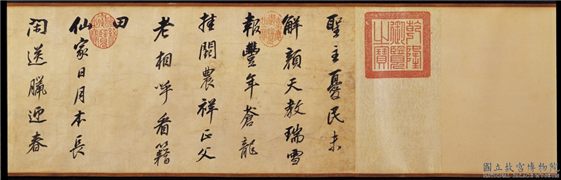 乾隆
御覽
之寶
聖主憂民未
解顏天教瑞雪
報豐年蒼龍
挂闕農祥正父
老相呼看籍
田
仙家日月本長
閑送臘迎春
國立故宮博物院